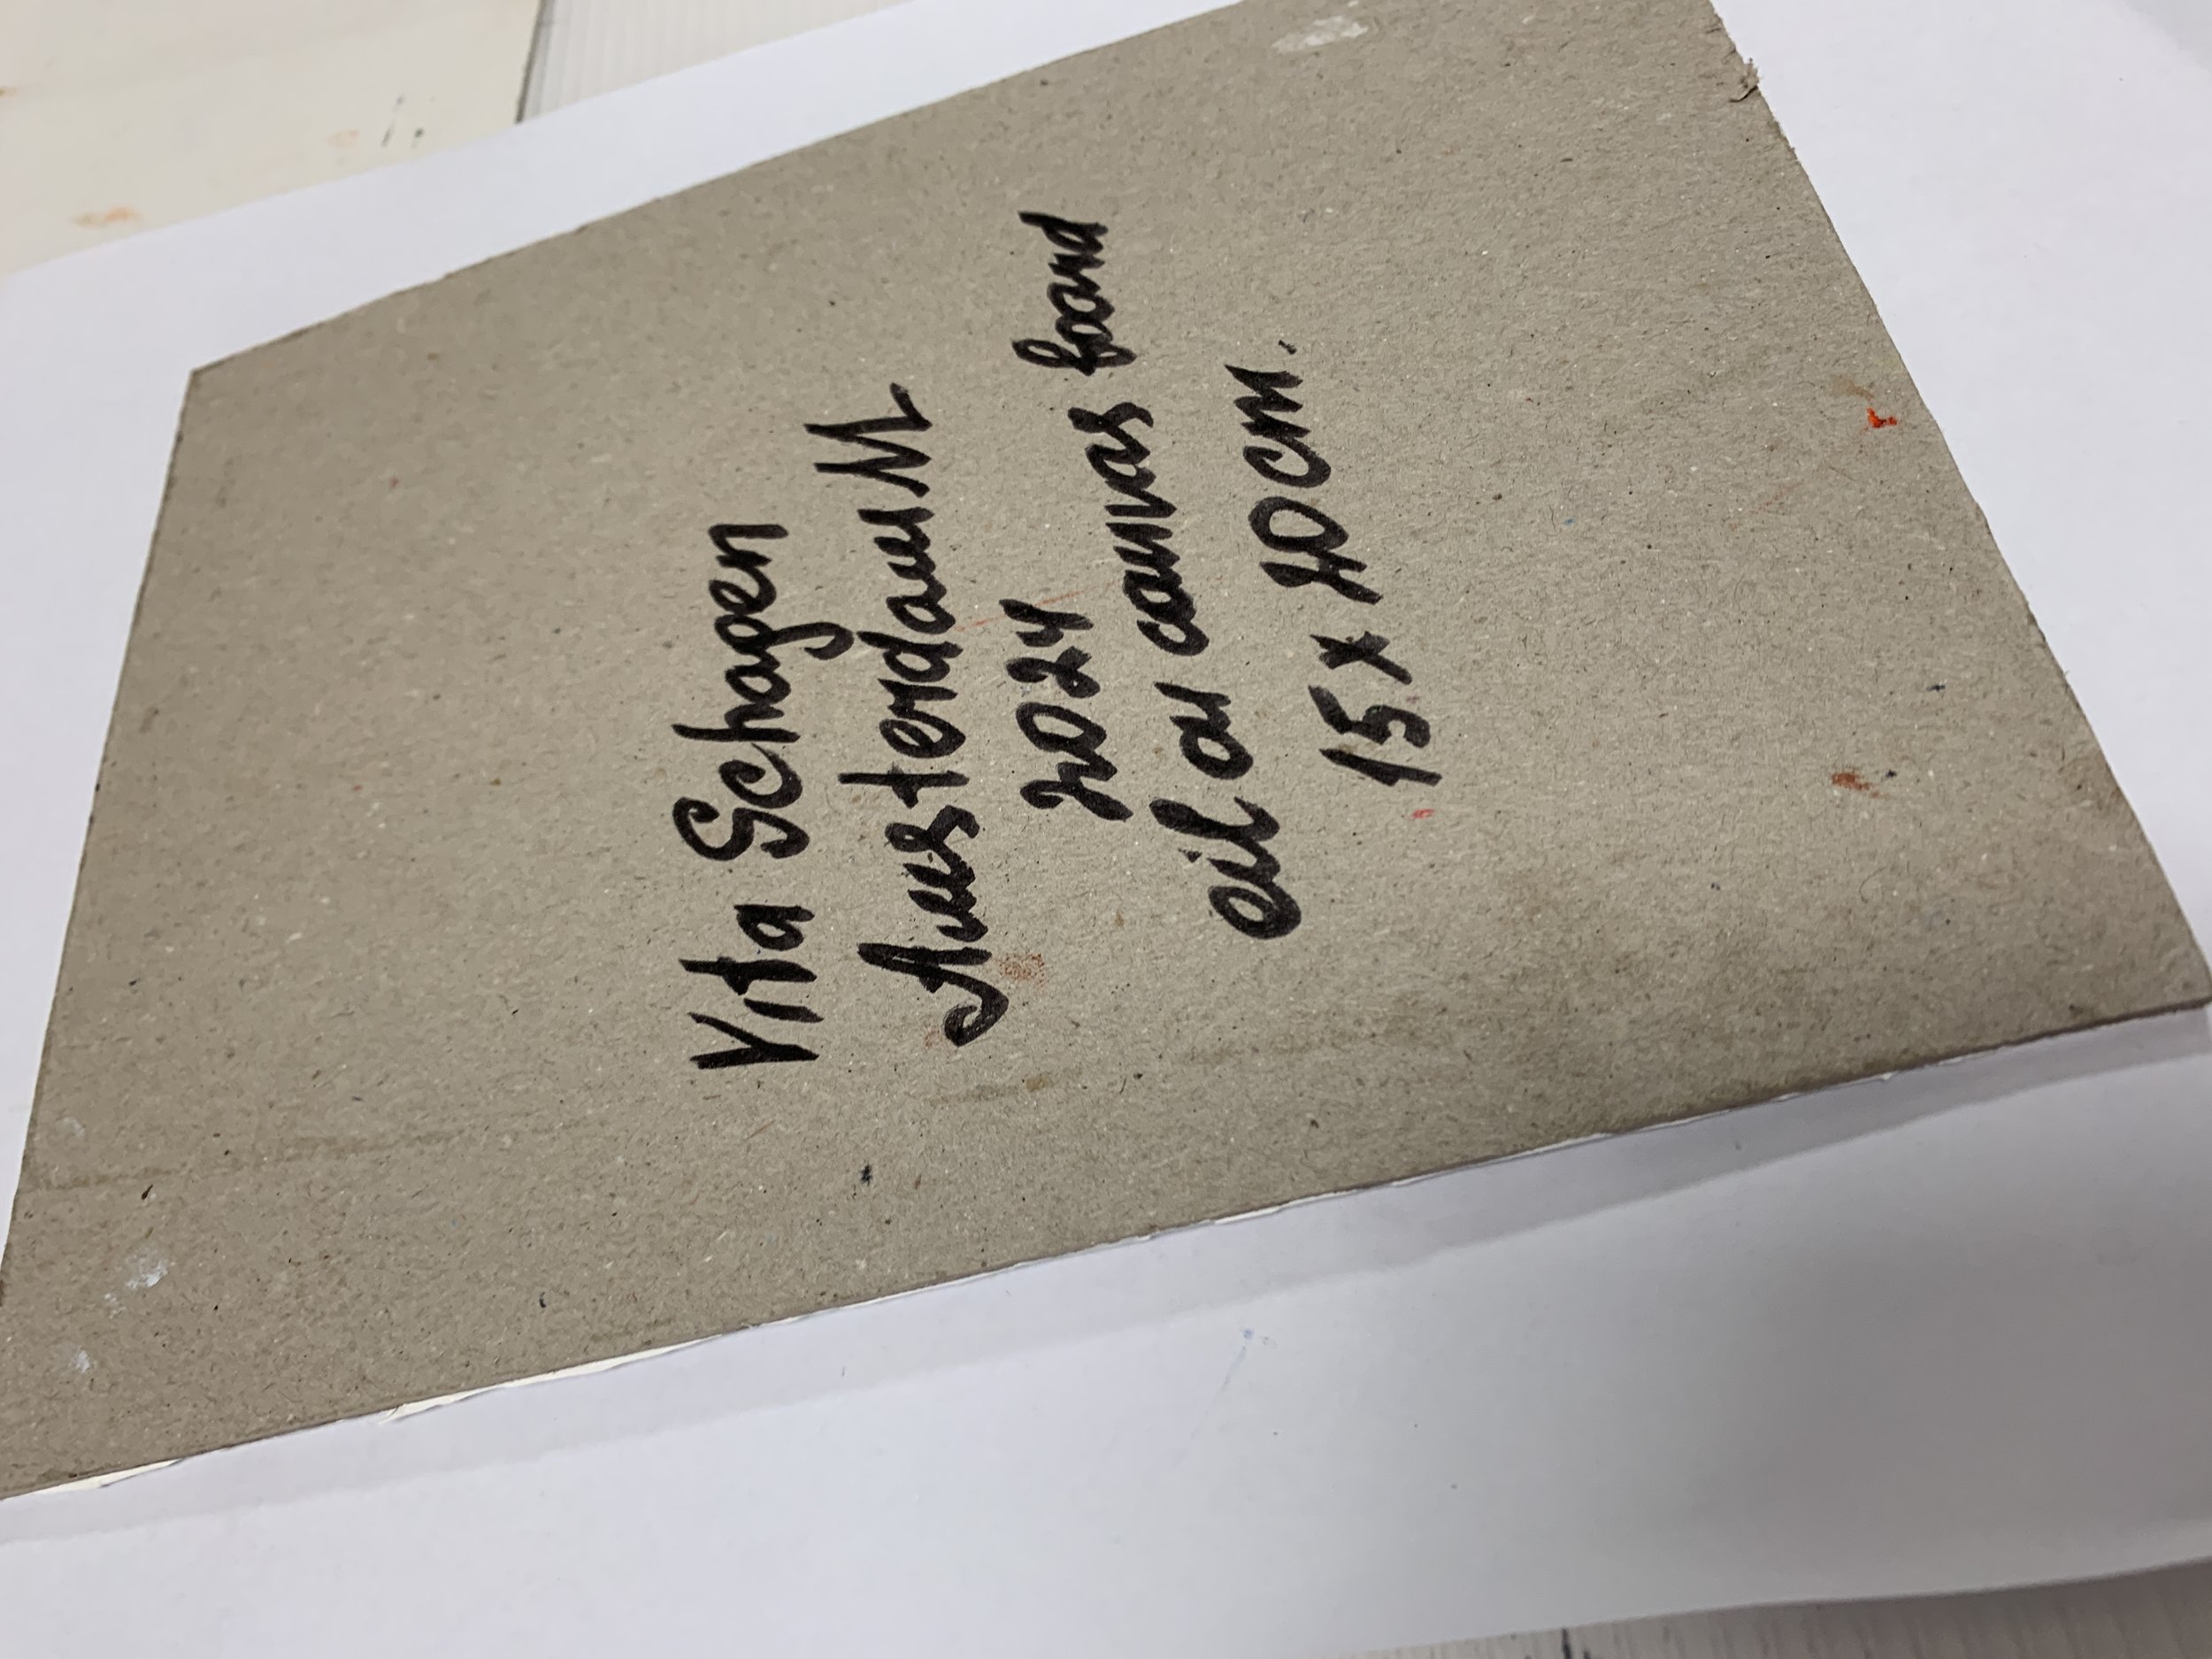 Vita Schagen
AmsterdamM
2024
oil on canvas board
15 x 20 cm.